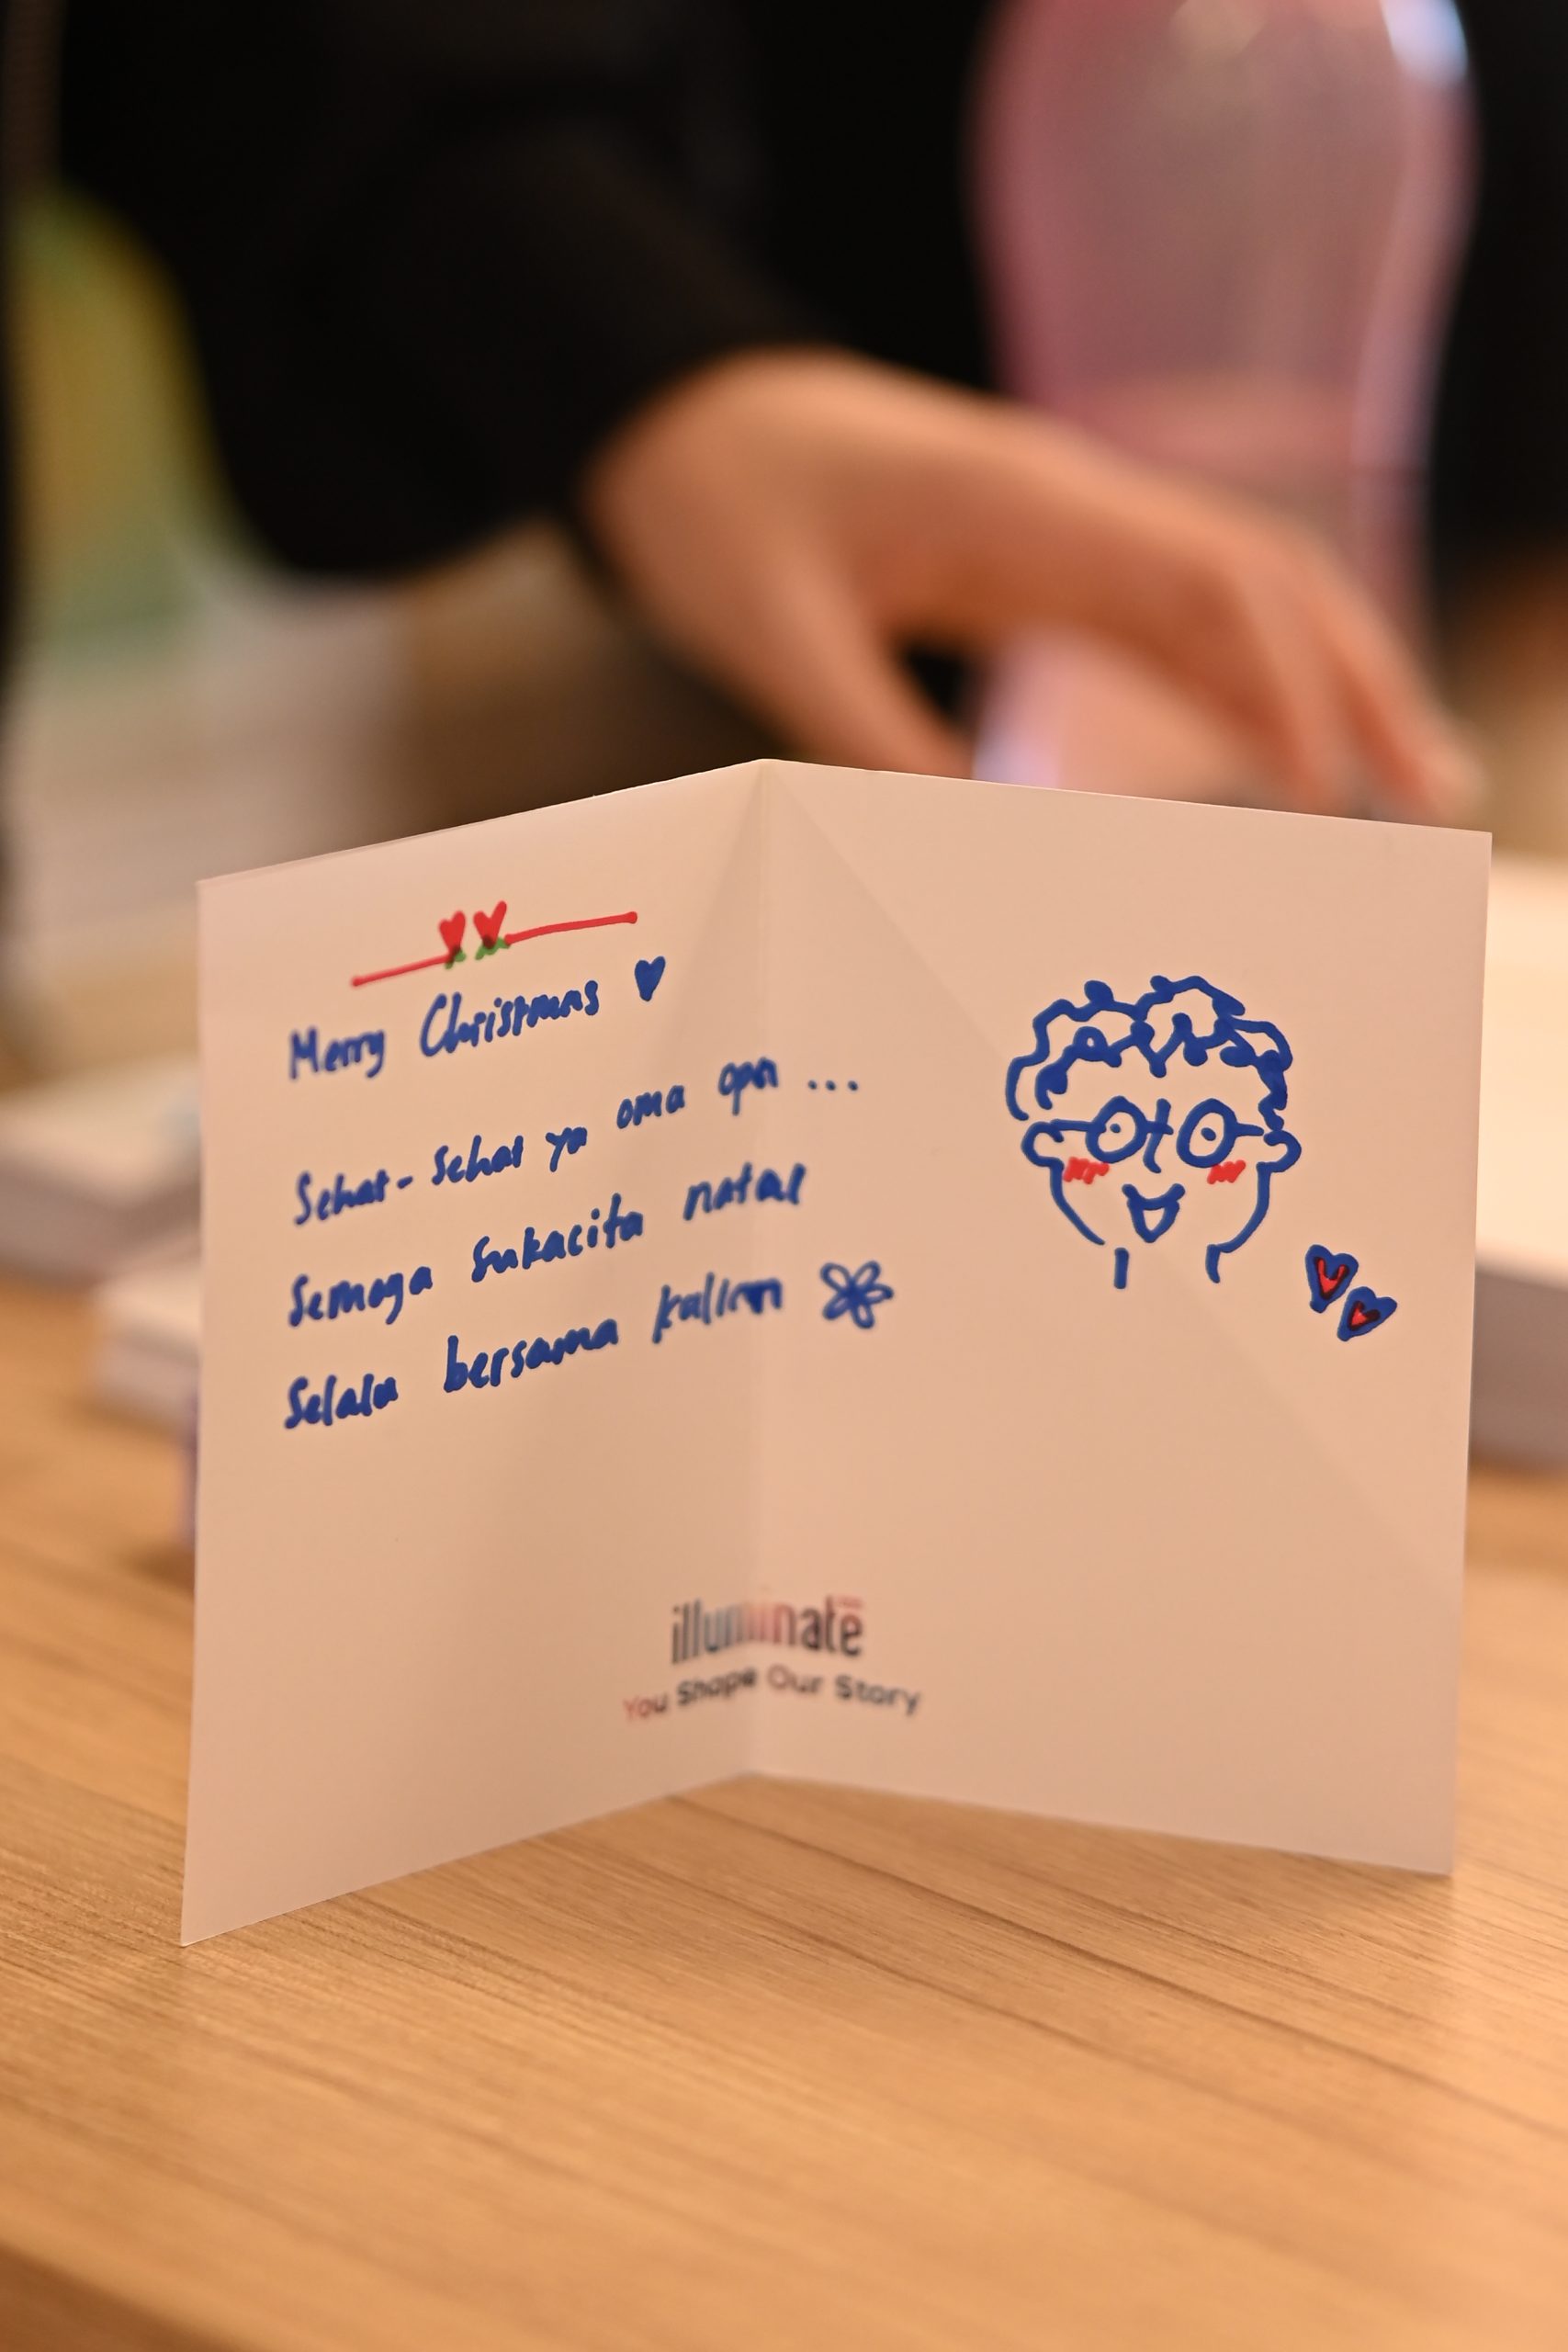 Merry Christmas
Sehat-sehat ya oma opa ...
Semoga sukacita natal
Selalu bersama kalian
illuminate
You Shape Our Story